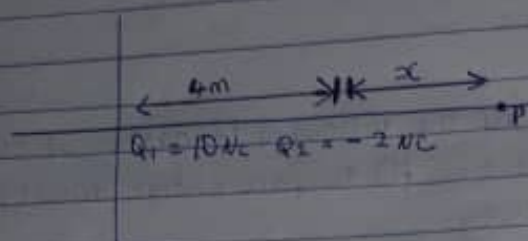 4m x
P
Q₁ = 10 NC Q₂ = - 2 NC